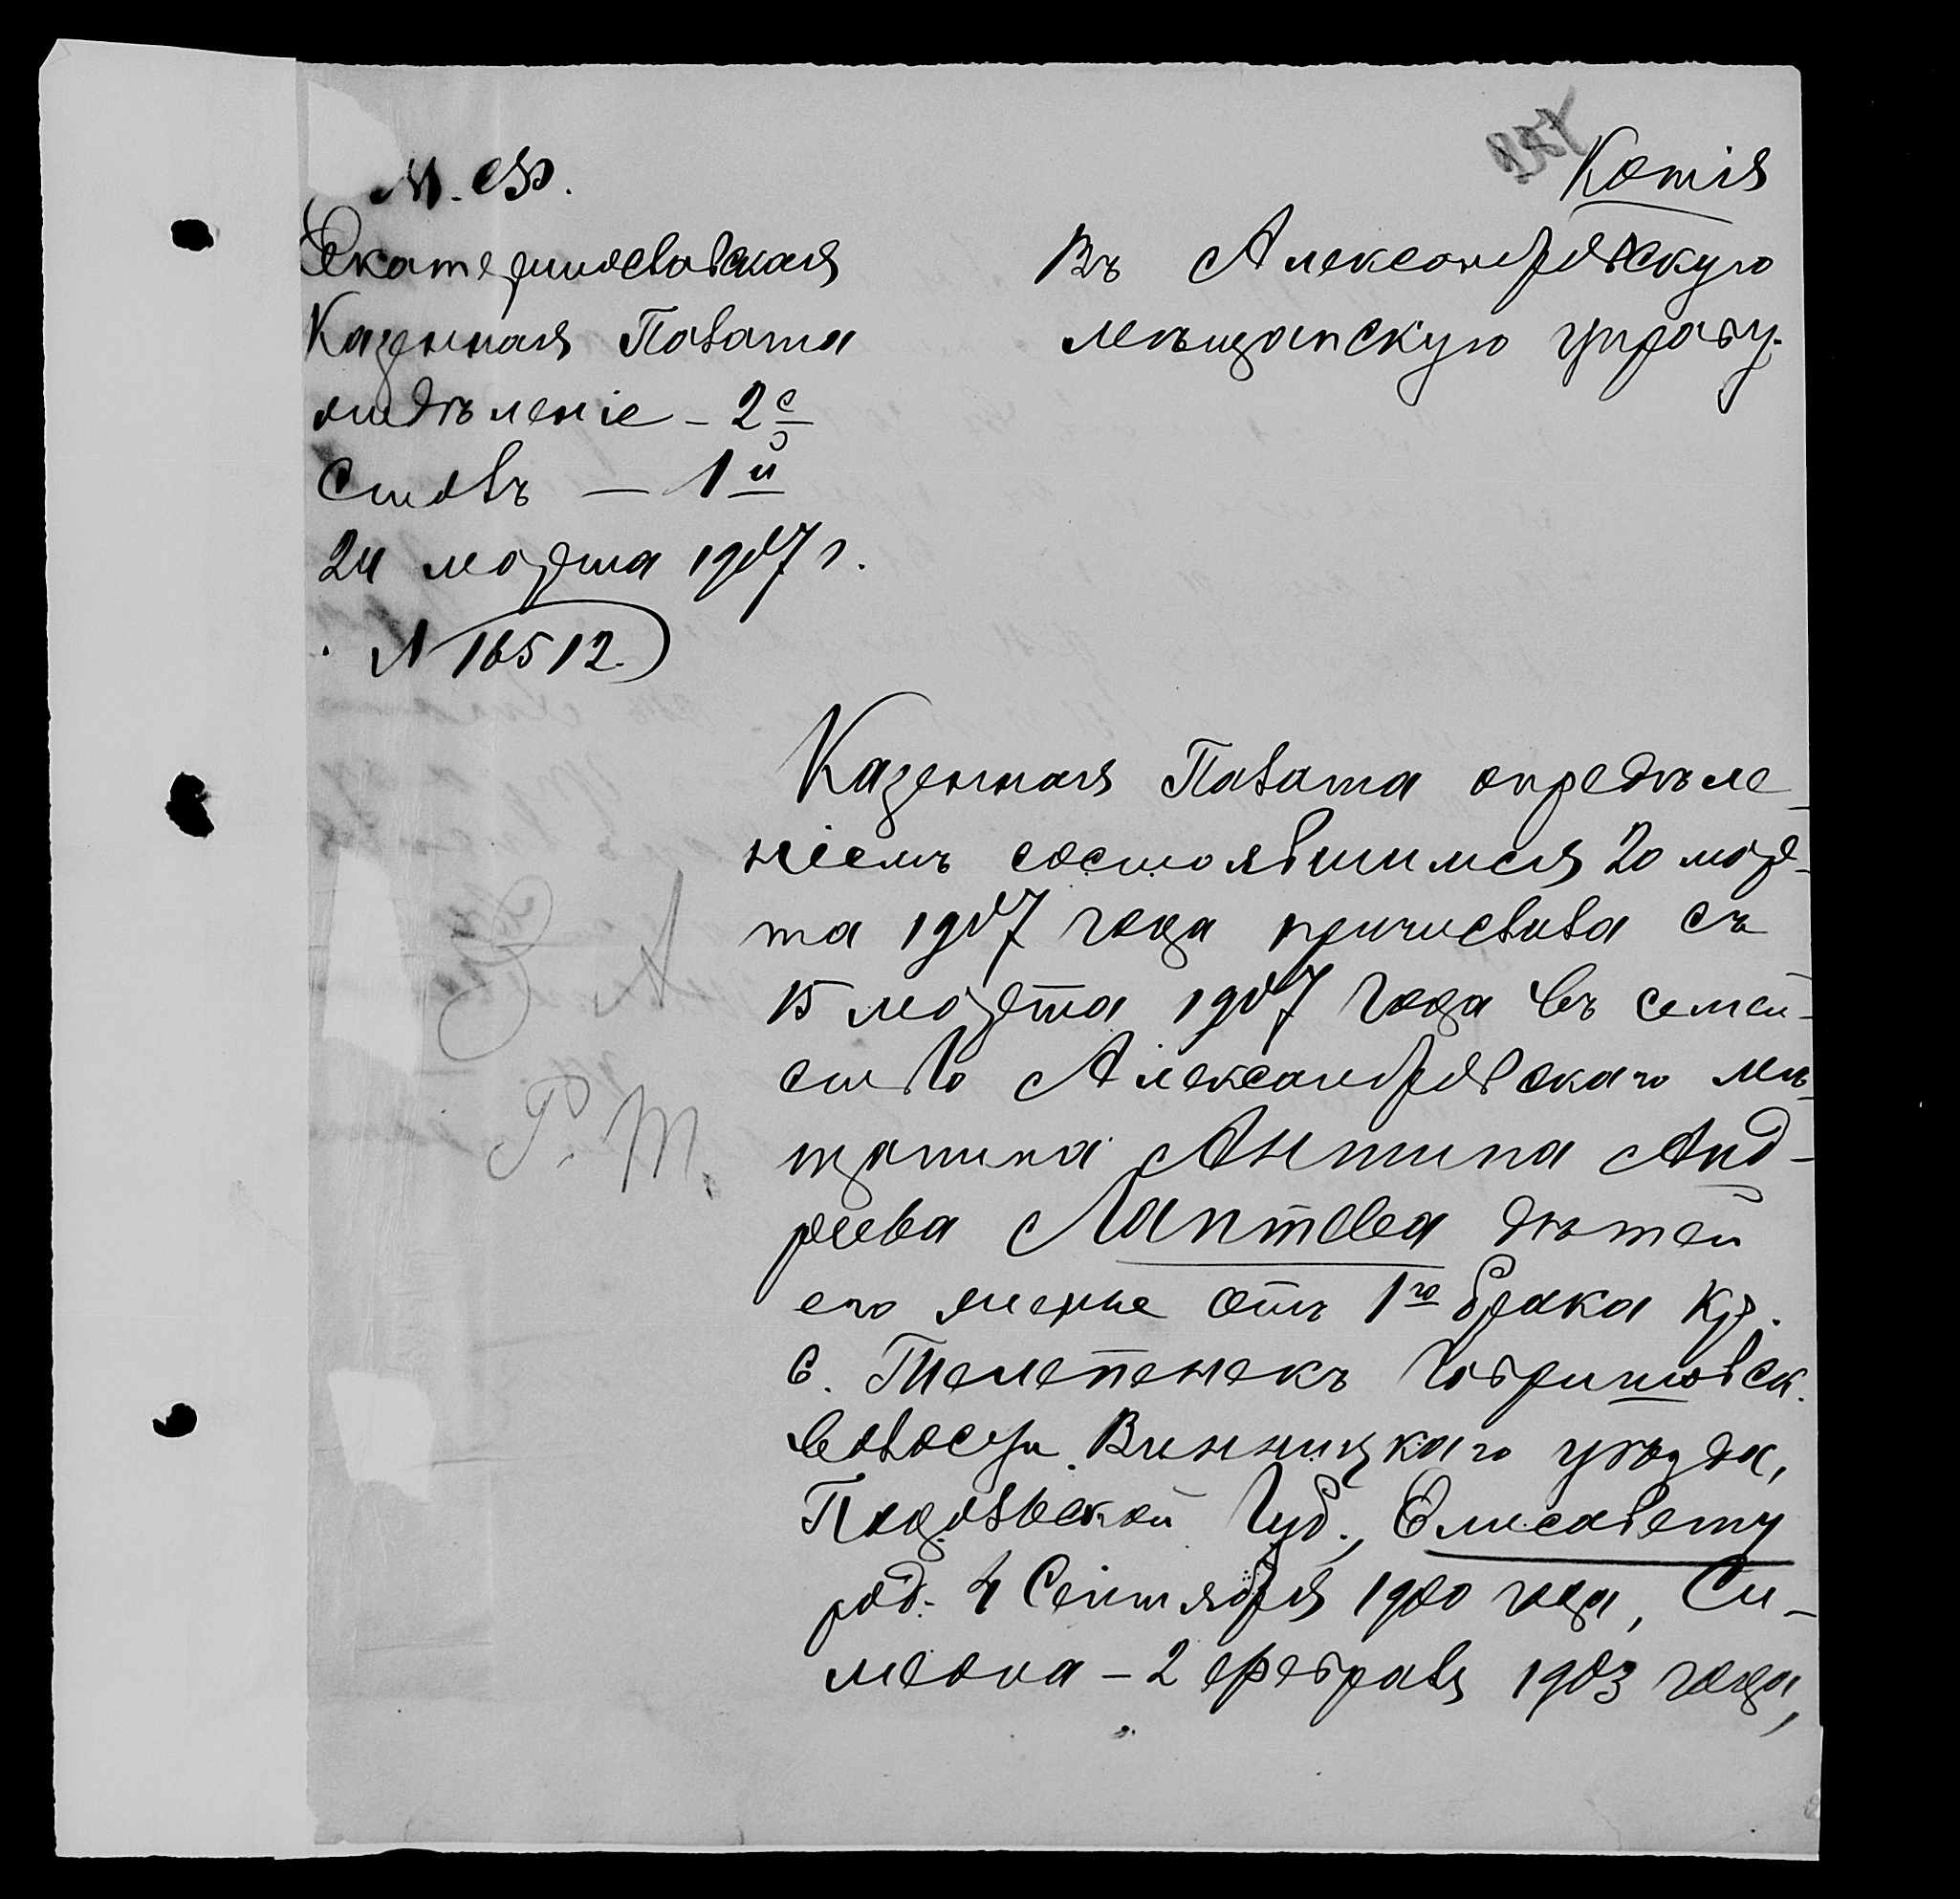 Копія
М. Ф.
Екатеринославская
Казенная Палата
отдѣленіе – 2е
Столъ – 1й
24 марта 1907 г.
N 16512.
Въ Александровскую
мѣщанскую управу.
Казенная Палата опредѣле-
ніемъ состоявшимся 20 мар-
та 1907 года причислила съ
15 марта 1907 года въ семей-
ство Александровскаго мѣ-
щанина Антипа Анд-
реева Лаптева дѣтей
его жены отъ 1го брака кр.
с. Телепенекъ Гавришовск.
волости Винницкаго уѣзда,
Подольской Губ., Елисавету
род. 4 Сентября 1900 года, Си-
меона – 2 февраля 1903 года,